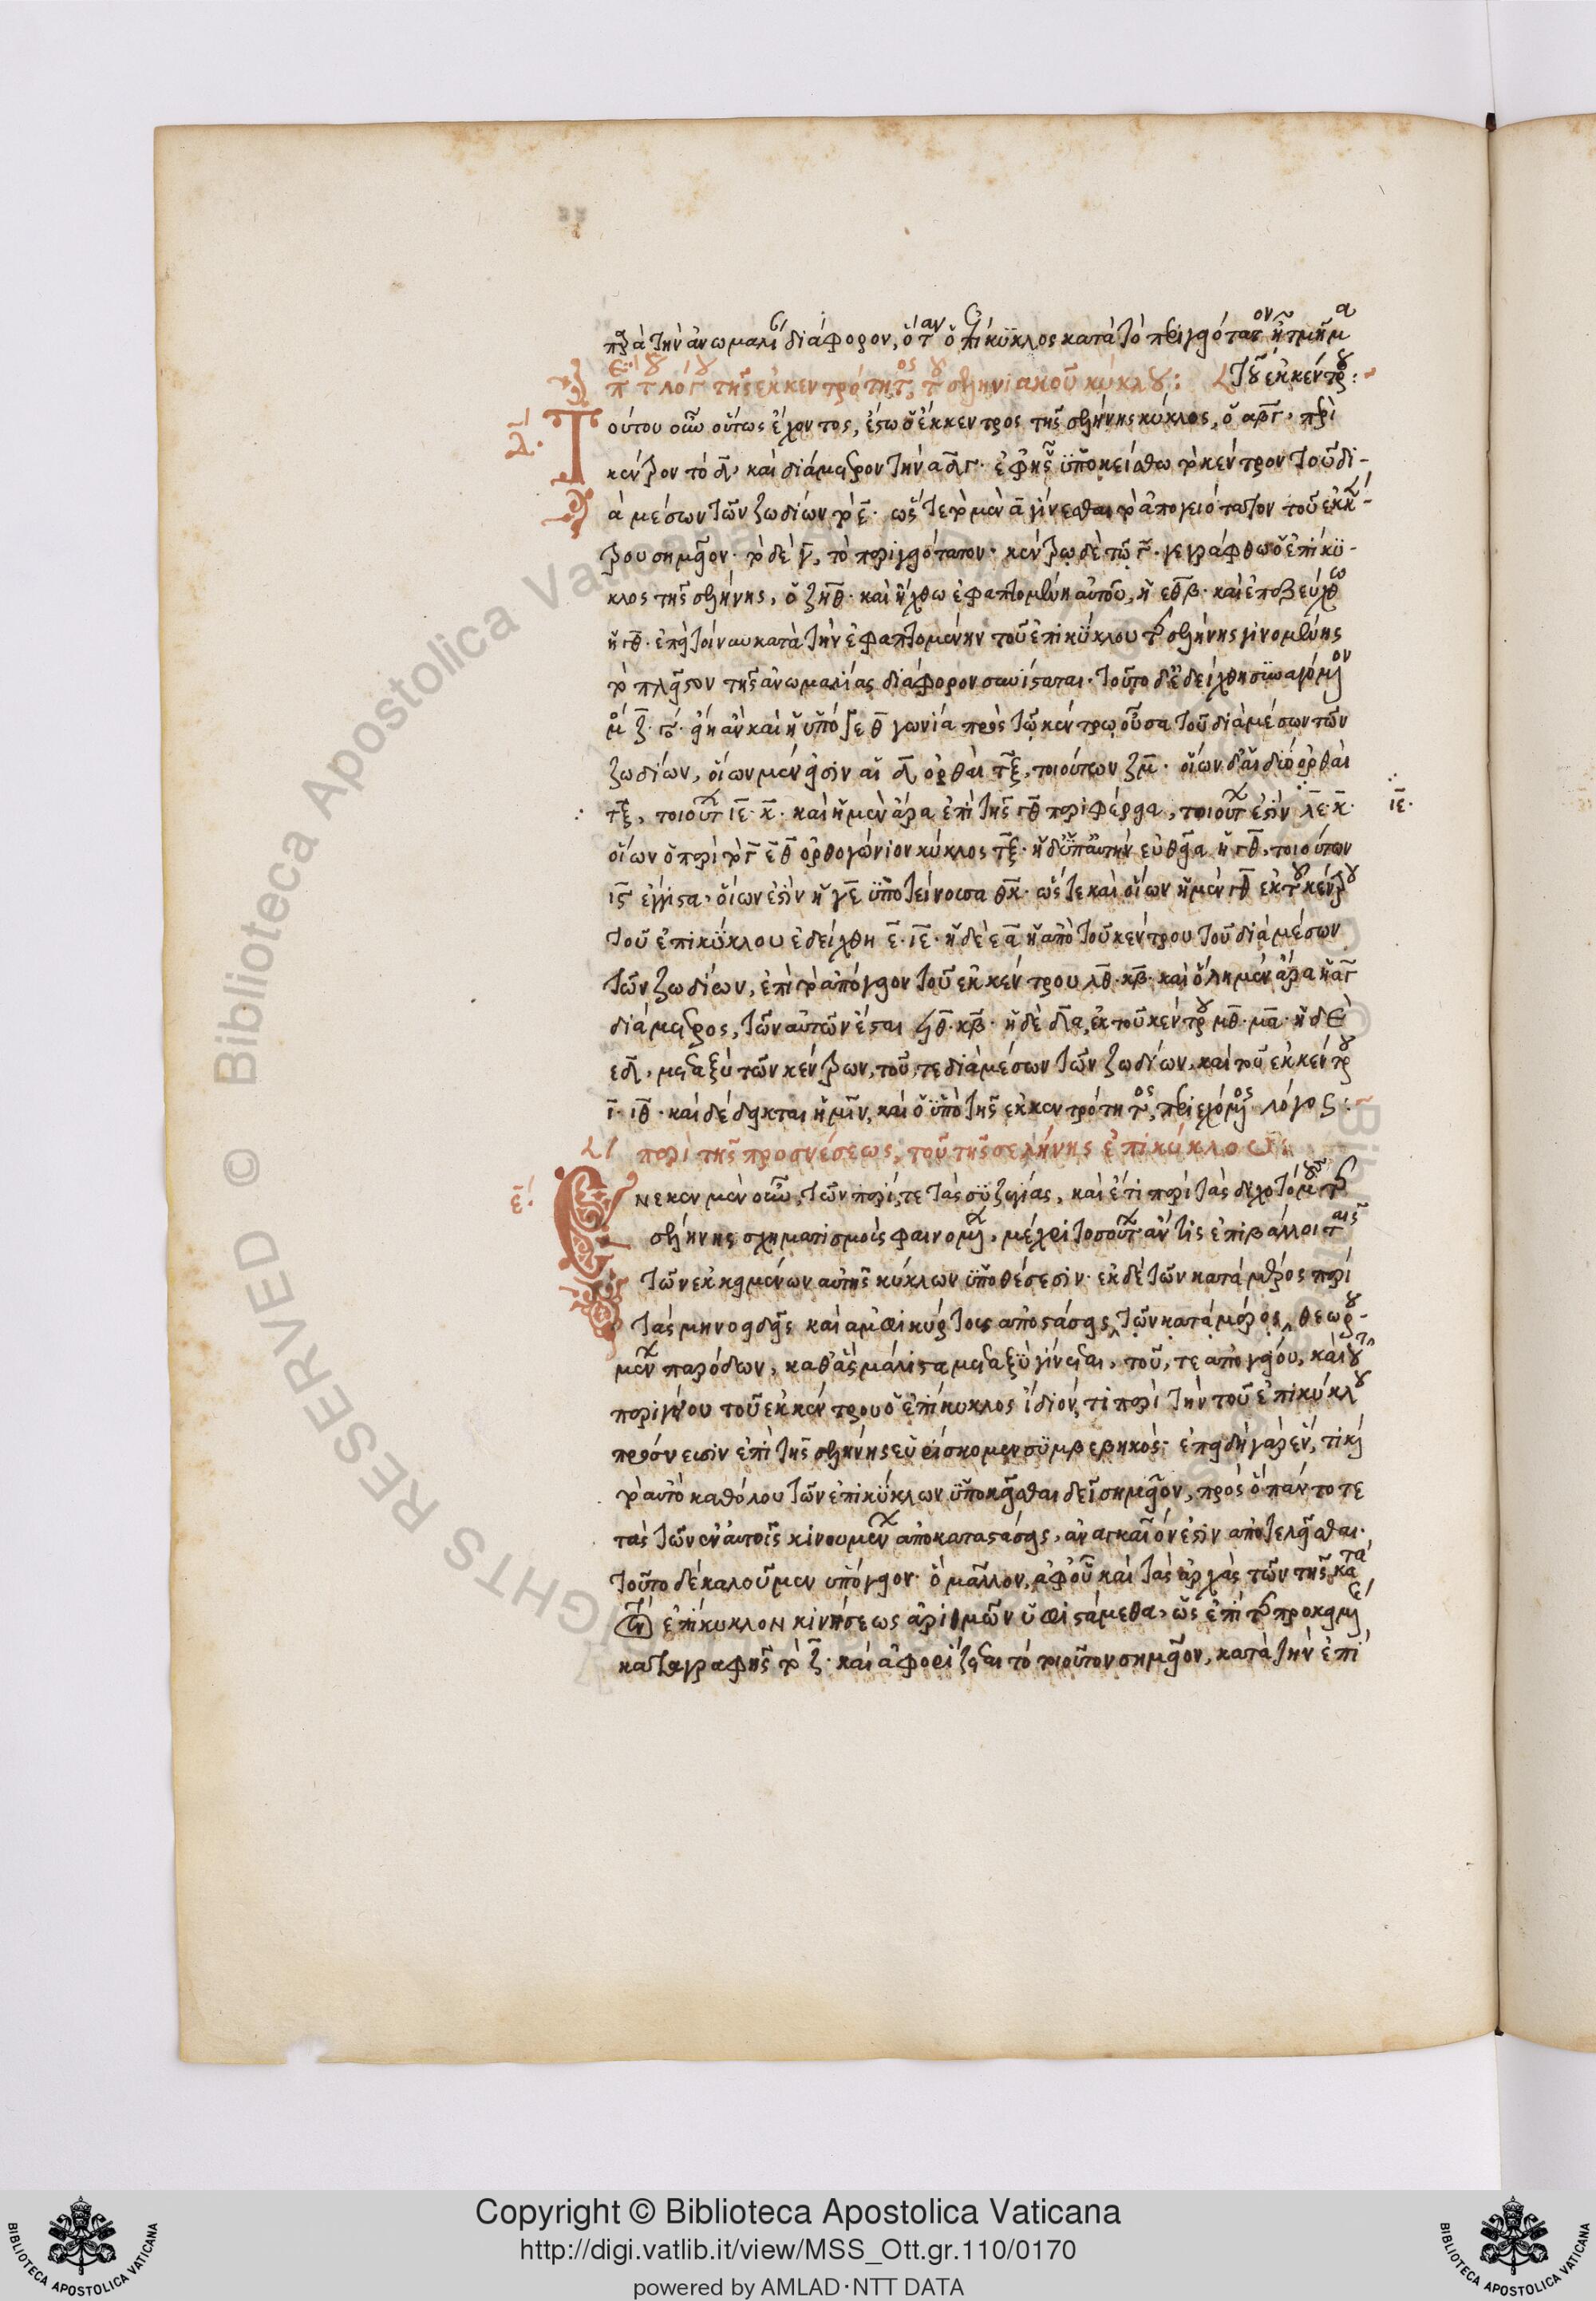 παρὰ τὴν ἀνωμαλίαν διάφορον, ὅταν ὁ ἐπίκυκλος κατὰ τὸ περιγειότατον ᾖ τμῆμα
τοῦ ἐκκέντρου:
περὶ τοῦ λόγου τῆς ἐκκεντρότητος τοῦ σεληνιακοῦ κύκλου:
δ
Τούτου οὖν οὕτως ἔχοντος, ἔστω ὁ ἔκκεντρος τῆς σελήνης κύκλος, ὁ αβγ, περὶ
κέντρον τὸ δ, καὶ διάμετρον τὴν αδγ. ἐφ' ἧς ὑποκείσθω τὸ κέντρον τοῦ δι-
ὰ μέσων τῶν ζωδίων τὸ ε. ὥστε τὸ μὲν α γίνεσθαι τὸ ἀπογειότατον τοῦ ἐκκέν-
τρου σημεῖον. τὸ δὲ γ, τὸ περιγειότατον. κέντρω δὲ τῶ γ. γεγράφθω ὁ ἐπίκυ-
κλος τῆς σελήνης, ὁ ζηθ. καὶ ἤχθω ἐφαπτομένη αὐτοῦ, ἡ εθβ. καὶ ἐπεζεύχθω
ἡ γθ. ἐπεὶ τοίνυν κατὰ τὴν ἐφαπτομένην τοῦ ἐπικύκλου τῆς σελήνης γινομένης
τὸ πλεῖστον τῆς ἀνωμαλίας διάφορον συνίσταται. τοῦτο δὲ ἐδείχθη συναγόμενον
μ ζ γο. εἴη ἂν καὶ ἡ ὑπὸ γεθ γωνία πρὸς τῶ κέντρω οὖσα τοῦ διὰ μέσων τῶν
ζωδίων, οἵων μέν εἰσιν αἱ δ ὀρθαὶ τξ, τοιούτων ζμ. οἵων δ' αἱ δύο ὀρθαὶ
τξ, τοιούτων ιε.κ. καὶ ἡ μὲν ἄρα ἐπὶ τῆς γθ περιφέρεια, τοιούτων ἐστὶν ιε.κ.
ιε.
οἵων ὁ περὶ τὸ γεθ ὀρθογώνιον κύκλος τξ. ἡ δ' ὑπ' αὐτὴν εὐθεῖα ἡ γθ, τοιούτων
ις ἔγγιστα, οἵων ἐστὶν ἡ γε ὑποτείνουσα ρκ. ὥστε καὶ οἵων ἡ μὲν γθ ἐκ τοῦ κέντρου
τοῦ ἐπικύκλου ἐδείχθη ε.ιε. ἡ δὲ εα ἡ ἀπὸ τοῦ κέντρου τοῦ διὰ μέσων
τῶν ζωδίων, ἐπὶ τὸ ἀπόγειον τοῦ ἐκκέντρου λθ.κβ. καὶ ὅλη μὲν ἄρα ἡ αγ
διάμετρος, τῶν αὐτῶν ἔσται ϟθ.κβ. ἡ δὲ δα, ἐκ τοῦ κέντρου μθ.μα. ἡ δὲ
εδ, μεταξὺ τῶν κέντρων, τοῦ, τε διὰ μέσων τῶν ζωδίων, καὶ τοῦ ἐκκέντρου
ι.ιθ. καὶ δέδεικται ἡμῖν, καὶ ὁ ὑπὸ τῆς ἐκκεντρότητος, περιεχόμενος λόγος:
περὶ τῆς προσνέσεως, τοῦ τῆς σελήνης ἐπικύκλου:
ε
Ἕνεκεν μὲν οὖν, τῶν περί, τε τὰς συζυγίας, καὶ ἔτι περὶ τὰς διχοτόμους τῆς
σελήνης σχηματισμοῖς φαινομένων, μέχρι τοσούτων ἄν τις ἐπιβάλλοι ταῖς
τῶν ἐκκειμένων αὐτῆς κύκλων ὑποθέσεσιν. ἐκ δὲ τῶν κατὰ μέρος περὶ
τὰς μηνοειδεῖς καὶ ἀμφικύρτους ἀποστάσεις, τῶν κατὰ μέρος, θεωρου-
μένων παρόδων, καθ' ἃς μάλιστα μεταξὺ γίνεται, τοῦ, τε ἀπογείου, καὶ τοῦ
περιγείου τοῦ ἐκκέντρου ὁ ἐπίκυκλος ἴδιόν, τι περὶ τὴν τοῦ ἐπικύκλου
πρόσνευσιν ἐπὶ τῆς σελήνης εὑρίσκομεν συμβεβηκός. ἐπειδὴ γὰρ ἕν, τι καὶ
τὸ αὐτὸ καθόλου τῶν ἐπικύκλων ὑποκεῖσθαι δεῖ σημεῖον, πρὸς ὃ πάντοτε
τὰς τῶν ἐν αὐτοῖς κινουμένων ἀποκαταστάσεις, ἀναγκαῖόν ἐστιν ἀποτελεῖσθαι.
τοῦτο δὲ καλοῦμεν ἀπόγειον ὁμαλὸν, ἀφ' οὗ καὶ τὰς ἀρχὰς τῶν τῆς κατὰ
τὸν ἐπίκυκλον κινήσεως ἀριθμῶν ὑφιστάμεθα, ὡς ἐπὶ τῆς προκειμένης
καταγραφῆς τὸ ζ. καὶ ἀφορίζεται τὸ τοιοῦτον σημεῖον, κατὰ τὴν ἐπὶ
Copyright © Biblioteca Apostolica Vaticana
http://digi.vatlib.it/view/MSS_Ott.gr.110/0170
powered by AMLAD·NTT DATA